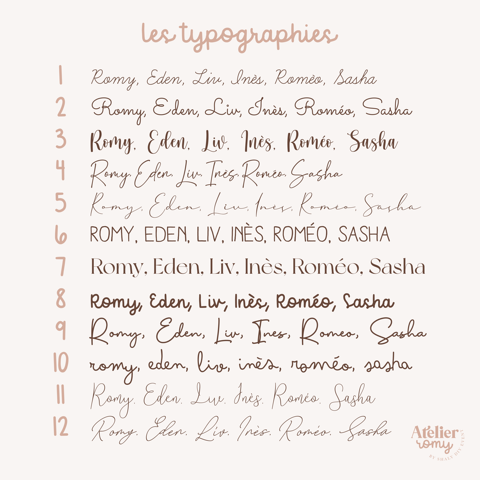 les typographies
1 Romy, Eden, Liv, Inès, Roméo, Sasha
2 Romy, Eden, Liv, Inès, Roméo, Sasha
3 Romy, Eden, Liv, Inès, Roméo, Sasha
4 Romy, Eden, Liv, Inès, Roméo, Sasha
5 Romy, Eden, Liv, Inès, Roméo, Sasha
6 ROMY, EDEN, LIV, INÈS, ROMÉO, SASHA
7 Romy, Eden, Liv, Inès, Roméo, Sasha
8 Romy, Eden, Liv, Inès, Roméo, Sasha
9 Romy, Eden, Liv, Ines, Romeo, Sasha
10 romy, eden, liv, inès, roméo, sasha
11 Romy, Eden, Liv, Inès, Roméo, Sasha
12 Romy, Eden, Liv, Inès, Roméo, Sasha
Atelier
romy